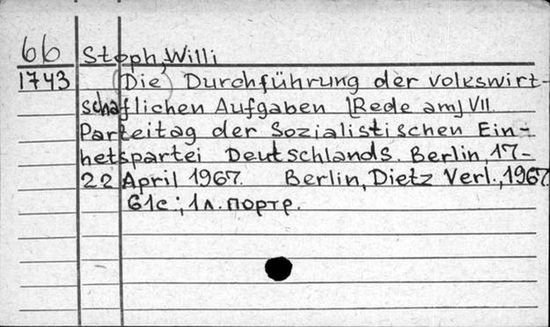 66 Stoph, Willi
1743 (Die) Durchführung der volkswirt-
schaftlichen Aufgaben [Rede am] VII
Parteitag der Sozialistischen Ein-
heitspartei Deutschlands. Berlin, 17-
22 April 1967. Berlin, Dietz Verl., 1967
61c; 1л. портр.